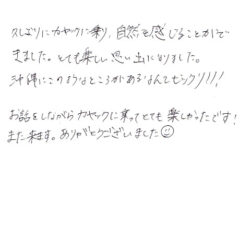 久しぶりにカヤックに乗り、自然を感じることができ
きました。とても楽しい思い出になりました。
沖縄にこのようなところがあるなんてビックリ!!!
お話をしながらカヤックに乗ってとても楽しかったです!
また来ます。ありがとうございました☺